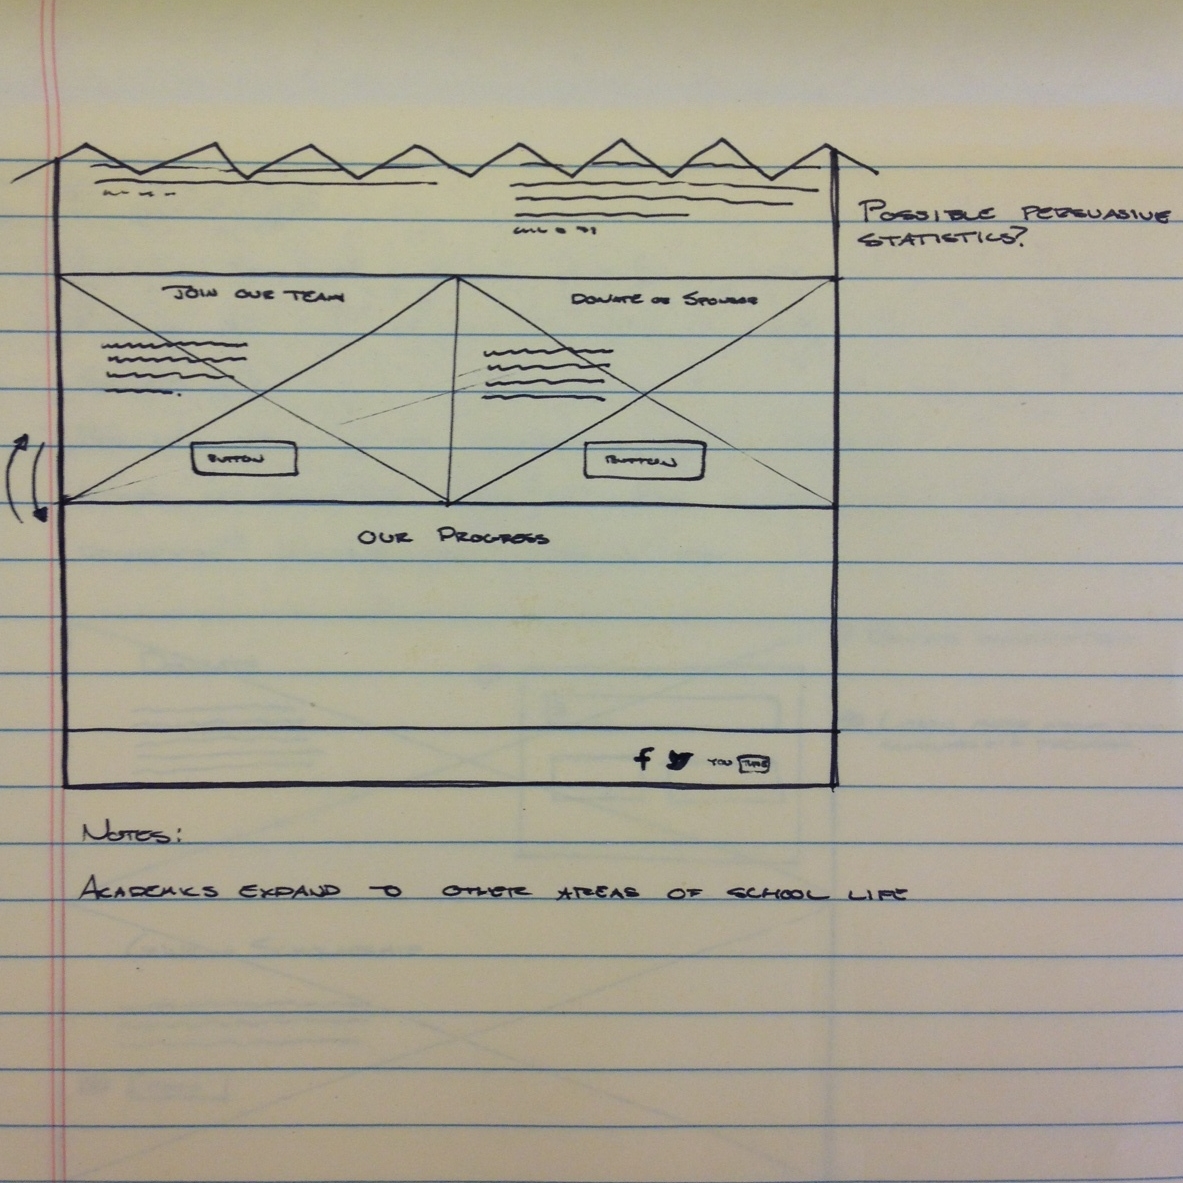 POSSIBLE PERSUASIVE
STATISTICS?
JOIN OUR TEAM
DONATE OR SPONSOR
BUTTON
BUTTON
OUR PROGRESS
f YOU TUBE
NOTES:
ACADEMICS EXPAND TO OTHER AREAS OF SCHOOL LIFE